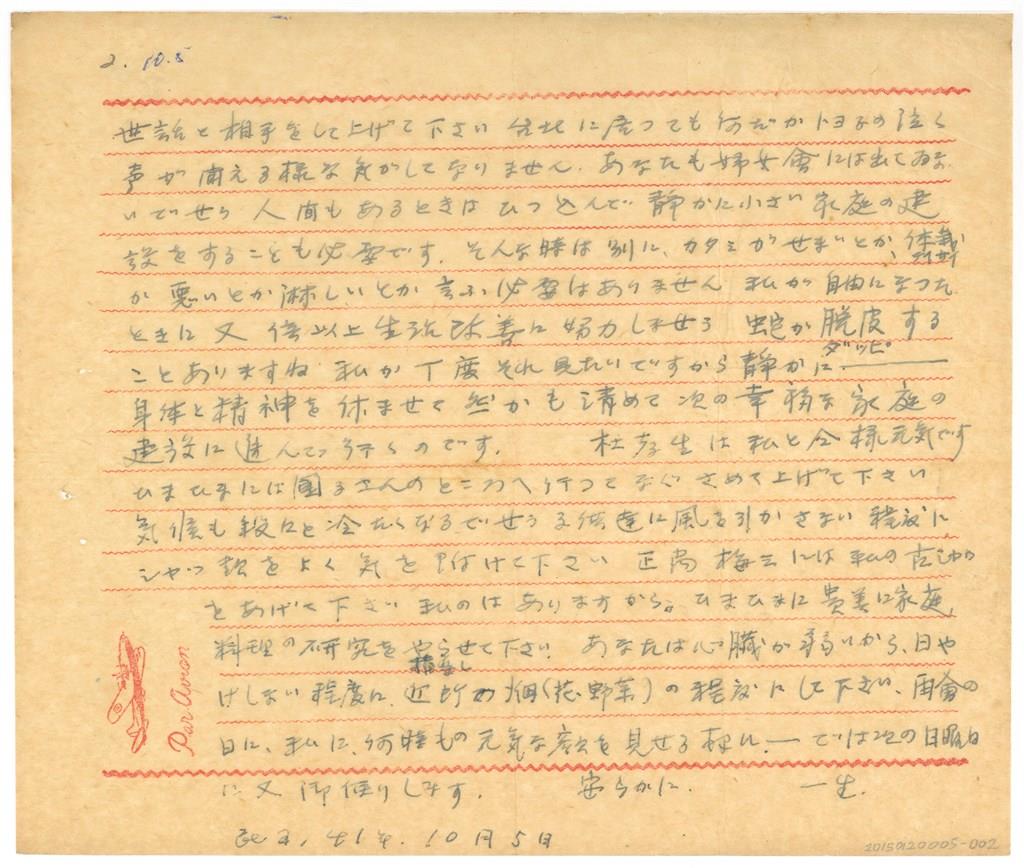 2. 10.5
世話と相手をして上げて下さい 台北に居つても何だかトヨ子の泣く
声が聞える様な気がしてなりません. あなたも婦女會には出てゐな
いでせう 人間もあるときはひつ込んで静かに小さい家庭の建
設をすることも必要です. そんな時は別に、カタミがせまいとか、体裁
が悪いとか淋しいとか言ふ必要はありません 私が自由になつた
ときに又倍以上生活改善に努力しませう 蛇が脱皮する
ダッピ
ことありますね 私が丁度それ見たいですから静かに――
身体と精神を休ませて然かも清めて次の幸福な家庭の
建設に進んで行くのです. 杜孝生は私と仝様元気です
ひまひまには國子さんのところへ行つてなぐさめて上げて下さい
気候も段々と冷たくなるでせう 子供達に風を引かさない程度に
シャツ類をよく気を付けて下さい 正 梅 には私の古シャツ
をあげて下さい 私のはありますから。ひまひまに貴美に家庭
料理の研究をやらせて下さい. あなたは心臓が弱いから、日や
けしない程度に、近所の畑(花・野菜)の程度にして下さい、再會の
日に、私に、何時もの元気な顔を見せる様に. ― では次の日曜日
に又御便りします. 安らかに. 一生.
民 41年. 10月5日
Par Avion
20150120005-002